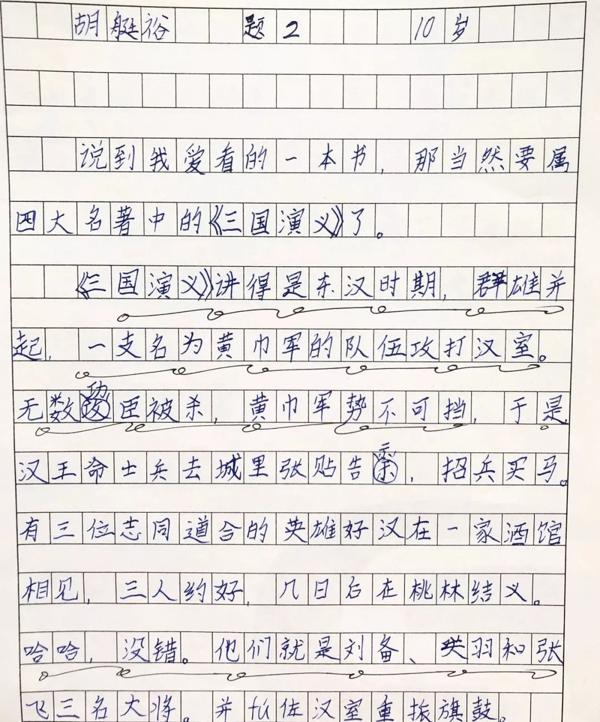 胡艇裕 题2 10岁
说到我爱看的一本书，那当然要属
四大名著中的《三国演义》了。
《三国演义》讲得是东汉时期，群雄并
起，一支名为黄巾军的队伍攻打汉室。
无数功臣被杀，黄巾军势不可挡，于是
汉王命士兵去城里张贴告示，招兵买马。
有三位志同道合的英雄好汉在一家酒馆
相见，三人约好，几日后在桃林结义。
哈哈，没错。他们就是刘备、关羽和张
飞三名大将。并松佐汉室重振旗鼓。